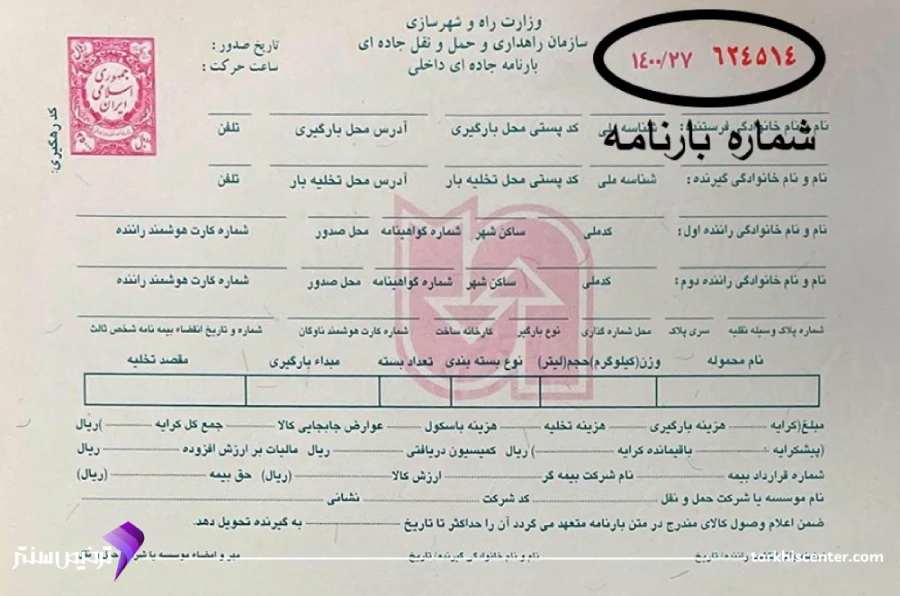 وزارت راه و شهرسازی
سازمان راهداری و حمل و نقل جاده ای
بارنامه جاده ای داخلی
۶۲۴۵۱۴ ۱۴۰۰/۲۷
تاریخ صدور :
ساعت حرکت :
جمهوری اسلامی ایران
کد رهگیری:
نام و نام خانوادگی فرستنده: شناسه ملی کد پستی محل بارگیری آدرس محل بارگیری تلفن
شماره بارنامه
نام و نام خانوادگی گیرنده: شناسه ملی کد پستی محل تخلیه بار آدرس محل تخلیه بار تلفن
نام و نام خانوادگی راننده اول: کدملی ساکن شهر شماره گواهینامه محل صدور شماره کارت هوشمند راننده
نام و نام خانوادگی راننده دوم: کدملی ساکن شهر شماره گواهینامه محل صدور شماره کارت هوشمند راننده
شماره پلاک وسیله نقلیه سری پلاک محل شماره گذاری نوع بارگیر کارخانه ساخت شماره کارت هوشمند ناوگان شماره و تاریخ انقضاء بیمه نامه شخص ثالث
نام محموله وزن(کیلوگرم)حجم(لیتر) نوع بسته بندی تعداد بسته مبداء بارگیری مقصد تخلیه
مبلغ(کرایه هزینه بارگیری هزینه تخلیه هزینه باسکول عوارض جابجایی کالا جمع کل کرایه )ریال
(پیشکرایه باقیمانده کرایه )ریال کمیسیون دریافتی ریال مالیات بر ارزش افزوده ریال
شماره قرارداد بیمه نام شرکت بیمه گر ارزش کالا (ریال) حق بیمه (ریال)
نام موسسه یا شرکت حمل و نقل کد شرکت نشانی
ضمن اعلام وصول کالای مندرج در متن بارنامه متعهد می گردد آن را حداکثر تا تاریخ به گیرنده تحویل دهد.
راننده/ تاریخ نام و نام خانوادگی گیرنده/ تاریخ مهر و امضاء موسسه یا
ترخیص سنتر
tarkhiscenter.com